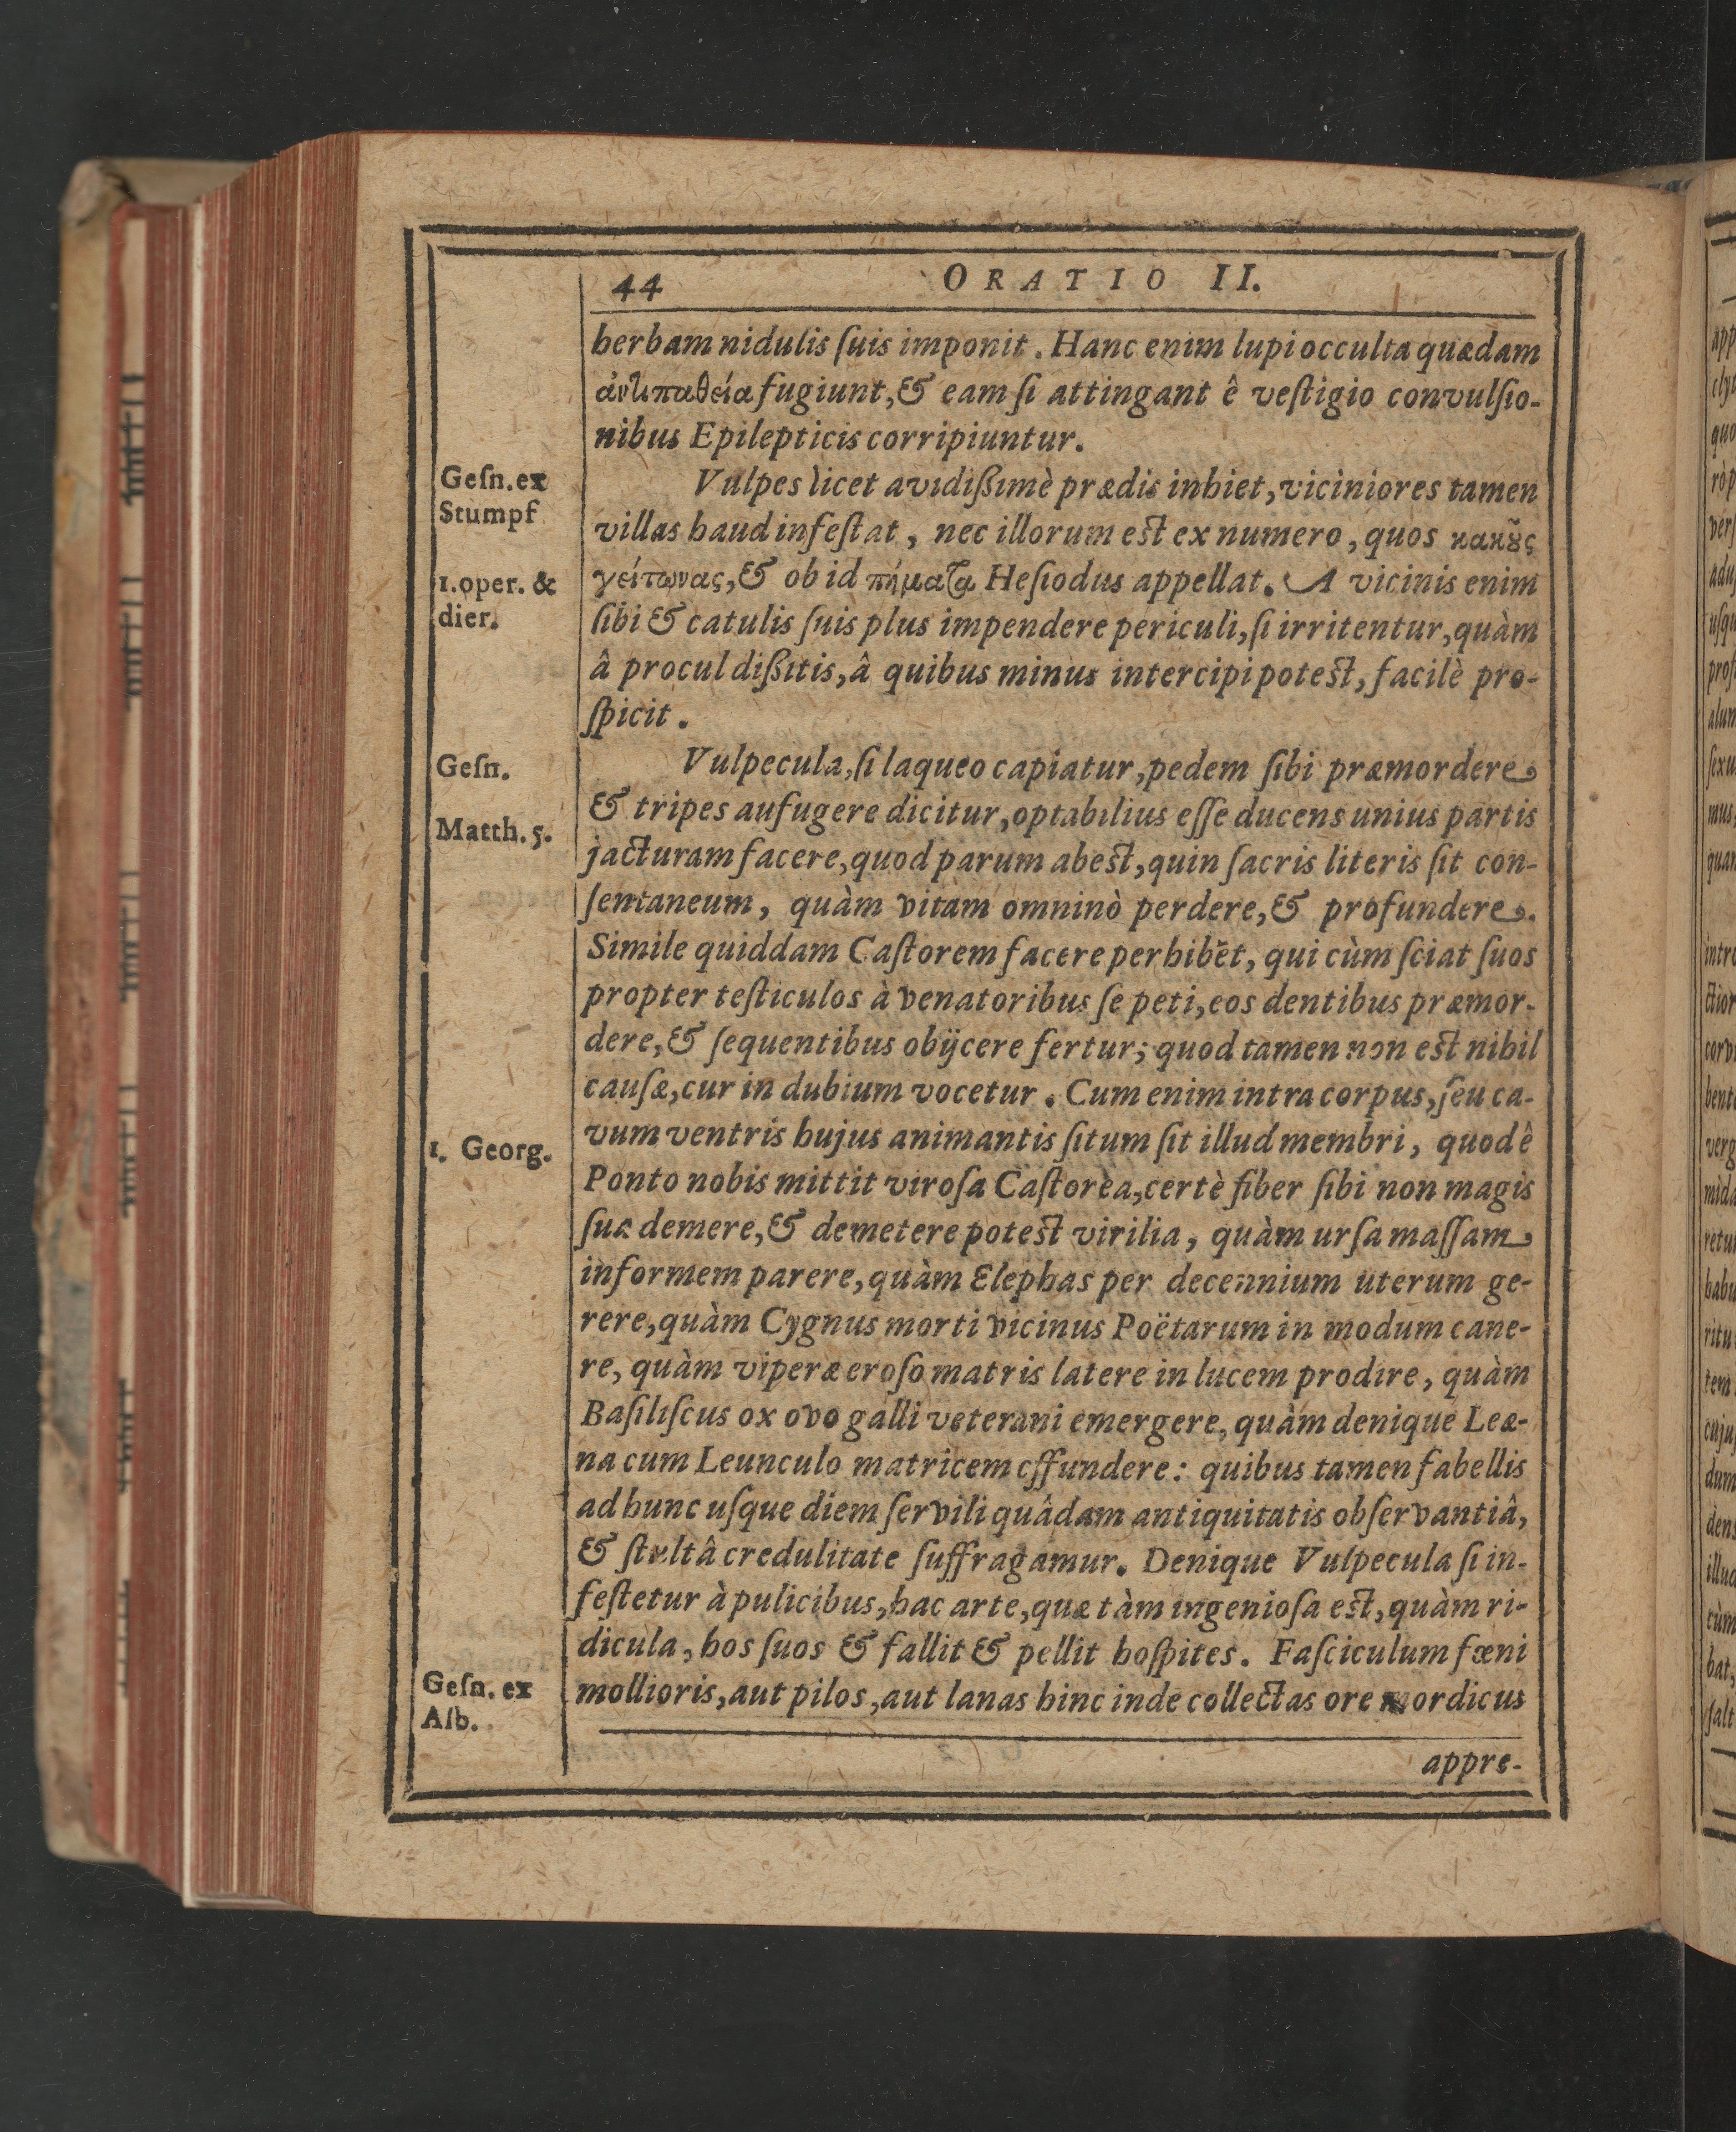 44 ORATIO II.
herbam nidulis ſuis imponit. Hanc enim lupi occulta quædam
ἀντιπαθεία fugiunt, & eam ſi attingant ê veſtigio convulſio-
nibus Epilepticis corripiuntur.
Geſn. ex
Stumpf
Vulpes licet avidißimè prædis inhiet, viciniores tamen
villas haud infeſtat, nec illorum est ex numero, quos κακȣ̃ς
1. oper. &
dier.
γείτωνας, & ob id πήματα Heſiodus appellat. A vicinis enim
ſibi & catulis ſuis plus impendere periculi, ſi irritentur, quàm
â procul dißitis, â quibus minus intercipi potest, facilè pro-
ſpicit.
Geſn.
Vulpecula, ſi laqueo capiatur, pedem ſibi præmordere
& tripes aufugere dicitur, optabilius eſſe ducens unius partis
Matth. 5.
jacturam facere, quod parum abest, quin ſacris literis ſit con-
ſentaneum, quàm vitam omninò perdere, & profundere.
Simile quiddam Caſtorem facere perhibēt, qui cùm ſciat ſuos
propter teſticulos à venatoribus ſe peti, eos dentibus præmor-
dere, & ſequentibus obijcere fertur; quod tamen non est nihil
cauſæ, cur in dubium vocetur. Cum enim intra corpus, ſeu ca-
vum ventris hujus animantis ſitum ſit illud membri, quod ê
1. Georg.
Ponto nobis mittit viroſa Caſtorèa, certè fiber ſibi non magis
ſua demere, & demetere potest virilia, quàm urſa maſſam
informem parere, quàm Elephas per decennium uterum ge-
rere, quàm Cygnus morti vicinus Poëtarum in modum cane-
re, quàm viperæ eroſo matris latere in lucem prodire, quàm
Baſiliſcus ox ovo galli veterani emergere, quàm denique Leæ-
na cum Leunculo matricem effundere: quibus tamen fabellis
ad hunc uſque diem ſervili quâdam antiquitatis obſervantiâ,
& ſtultâ credulitate ſuffragamur. Denique Vulpecula ſi in-
feſtetur à pulicibus, hac arte, quæ tàm ingenioſa est, quàm ri-
dicula, hos ſuos & fallit & pellit hoſpites. Faſciculum fœni
Geſn. ex
Alb.
mollioris, aut pilos, aut lanas hinc inde collectas ore mordicus
appre-